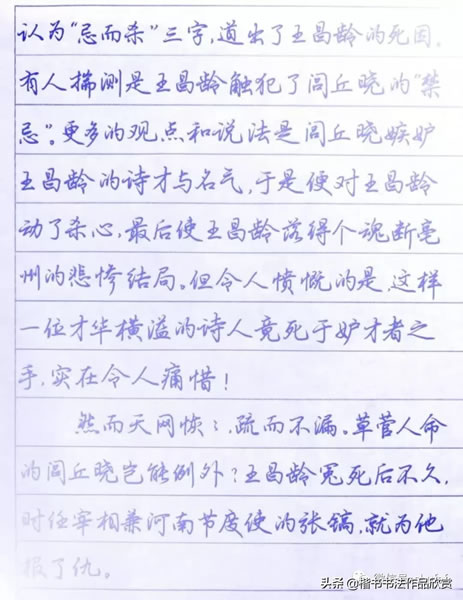 认为“忌而杀”三字，道出了王昌龄的死因。
有人揣测是王昌龄触犯了闾丘晓的“禁
忌”。更多的观点和说法是闾丘晓嫉妒
王昌龄的诗才与名气，于是便对王昌龄
动了杀心，最后使王昌龄落得个魂断亳
州的悲惨结局。但令人愤慨的是，这样
一位才华横溢的诗人竟死于妒才者之
手，实在令人痛惜！
然而天网恢〻，疏而不漏。草菅人命
的闾丘晓岂能例外？王昌龄冤死后不久，
时任宰相兼河南节度使的张镐，就为他
报了仇。
头条 @楷书书法作品欣赏